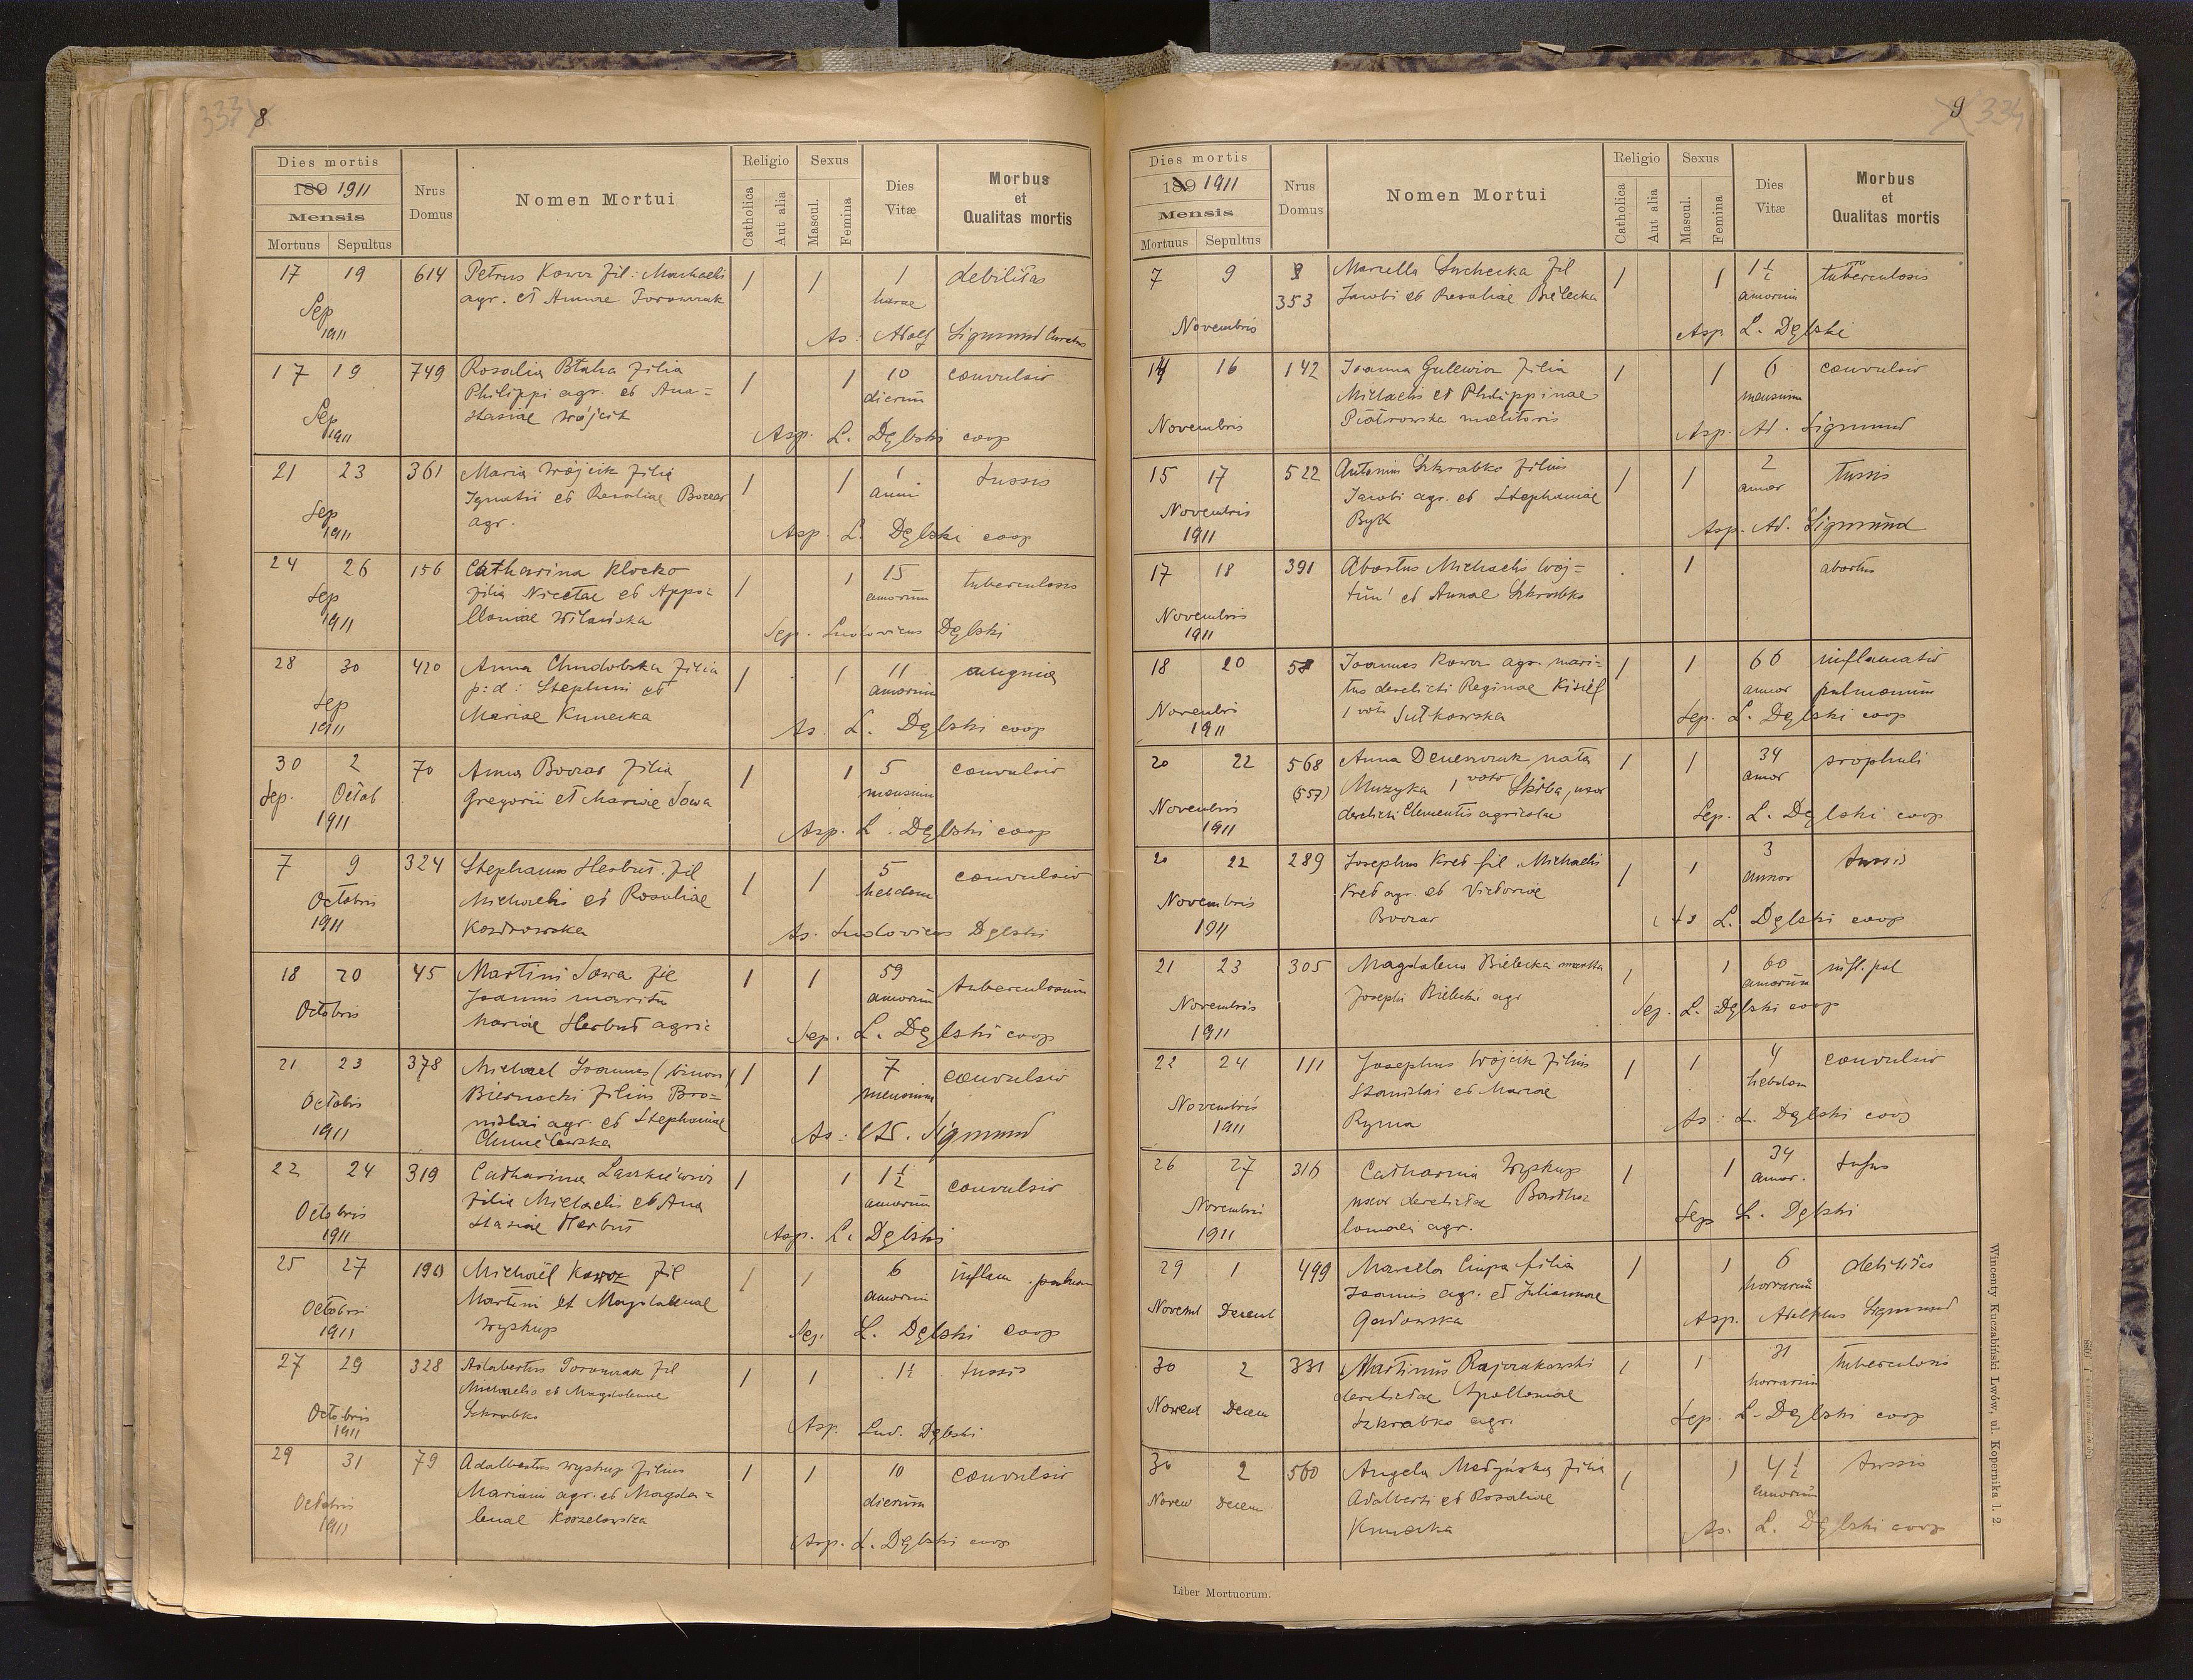 8
Dies mortis
189 1911
Mensis
Mortuus Sepultus
Nrus Domus
Nomen Mortui
Religio
Catholica
Aut alia
Sexus
Mascul.
Femina
Dies Vitæ
Morbus et Qualitas mortis
17 19 614 Petrus Kowcz fil: Michaelis 1 1 1 debilitas
agr. et Annae horae
Sep
1911 As: Adolf Sigmund
17 19 749 Rosalia Błaha filia 1 1 10 convulsio
Philippi agr. et Ana= dierum
stasiae Wójcik
Sep
1911 Asp. L. Dęlski coop
21 23 361 Maria Wójcik filia 1 1 1 tussis
Ignatii et Rosaliae Boczar anni
agr.
Sep
1911 Asp. L. Dęlski coop
24 26 156 Catharina Klocko 1 1 15 tuberculosis
filia Nicetae et Appo= annorum
lloniae Wilańska
Sep
1911 Sep. Ludovicus Dęlski
28 30 420 Anna Chudobska filia 1 1 11 angina
p: d: Stephani et annorum
Mariae Kunecka
Sep
1911 As. L. Dęlski coop
30 2 70 Anna Boczar filia 1 1 5 convulsio
Gregorii et Mariae Sowa mensium
Sep. Octob
1911 Asp. L. Dęlski coop
7 9 324 Stephanus Herbut fil 1 1 5 convulsio
Michaelis et Rosaliae hebdom
Octobris
1911 As. Ludovicus Dęlski
18 20 45 Martini Sowa fil 1 1 59
Joannis maritus annorum
Octobris Mariae Herbut agric
Sep. L. Dęlski coop
21 23 378 Michael Joannes (binom) 1 1 7 convulsio
Biernacki filius Bro= mensium
nislai agr. et Stephaniae
Chmielewska
Octobris
1911 As: Ad. Sigmund
22 24 319 Catharina Laszkiewicz 1 1 1 1/2 convulsio
filia Michaelis et Ana annorum
stasiae Herbut
Octobris
1911 Asp. L. Dęlski
25 27 190 Michaël Kowcz fil 1 1 6 inflam. pulmon
Martini et Magdalenae annorum
Wyskup
Octobris
1911 Sep. L. Dęlski coop
27 29 328 Adalbertus fil 1 1 1 1/2 tussis
Michaelis et Magdalenae
Szkrabko
Octobris
1911 Asp. Lud. Dęlski
29 31 79 Adalbertus Wyskup filius 1 1 10 convulsio
Mariani agr. et Magda= dierum
lenae
Octobris
1911 Asp. L. Dęlski coop
9 334
Dies mortis
189 1911
Mensis
Mortuus Sepultus
Nrus Domus
Nomen Mortui
Religio
Catholica
Aut alia
Sexus
Mascul.
Femina
Dies Vitæ
Morbus et Qualitas mortis
7 9 353 Marcella Suchecka fil 1 1 1 1/2 tuberculosis
Jacobi et Rosaliae Bielecka annorum
Novembris Asp L. Dęlski
14 16 142 Joanna Gulewicz filia 1 1 6 convulsio
Michaelis et Philippinae mensium
Piotrowska molitoris
Novembris Asp. Ad. Sigmund
15 17 522 Antonius Szkrabko filius 1 1 2 tussis
Jacobi agr. et Stephaniae annor
Byk
Novembris
1911 Asp. Ad. Sigmund
17 18 391 Abortus Michaelis Woj= 1 abortus
tun et Annae Szkrabko
Novembris
1911
18 20 58 Joannes Kowcz agr. mari= 1 1 66 inflamatio
tus derelicti Reginae Kisiel annor pulmonum
1 voto Sutkowska
Novembri
1911 Sep. L. Dęlski coop
20 22 568 Anna nata 1 1 34
(557) Muzyka 1 voto Skiba, uxor annor
derelicti Clementis agricolae
Novembris
1911 Sep. L. Dęlski coop
20 22 289 Josephus Kret fil. Michaelis 1 1 3 tussis
Kret agr. et Victoriae annor
Boczar
Novembris
1911 As L. Dęlski coop
21 23 305 Magdalena Bielecka 1 1 60 infl. pul
Josephi Bielecki agr annorum
Novembris
1911 Sep. L. Dęlski coop
22 24 111 Josephus Wójcik filius 1 1 4 convulsio
Stanislai et Mariae hebdom
Ryma
Novembris
1911 As: L. Dęlski coop
26 27 316 Catharina Wyskup 1 1 34
uxor derelictae Bartho= annor.
lomaei agr.
Novembris
1911 Sep L. Dęlski
29 1 499 Marcella Ciupa filia 1 1 6 debilitas
Joannis agr. et Juliannae horrarum
Gadowska
Novemb Decemb Asp. Adolphus Sigmund
30 2 331 Martinus Rajczakowski 1 1 31 tuberculosis
derelictae Apolloniae horrarum
Szkrabko agr.
Novemb Decem Sep. L. Dęlski coop
30 2 560 Angela Medyńska filia 1 1 4 1/2 tussis
Adalberti et Rosaliae annorum
Kunecka
Novem Decem As. L. Dęlski coop
Liber Mortuorum.
Wincenty Kuczabiński Lwów, ul. Kopernika l. 2.